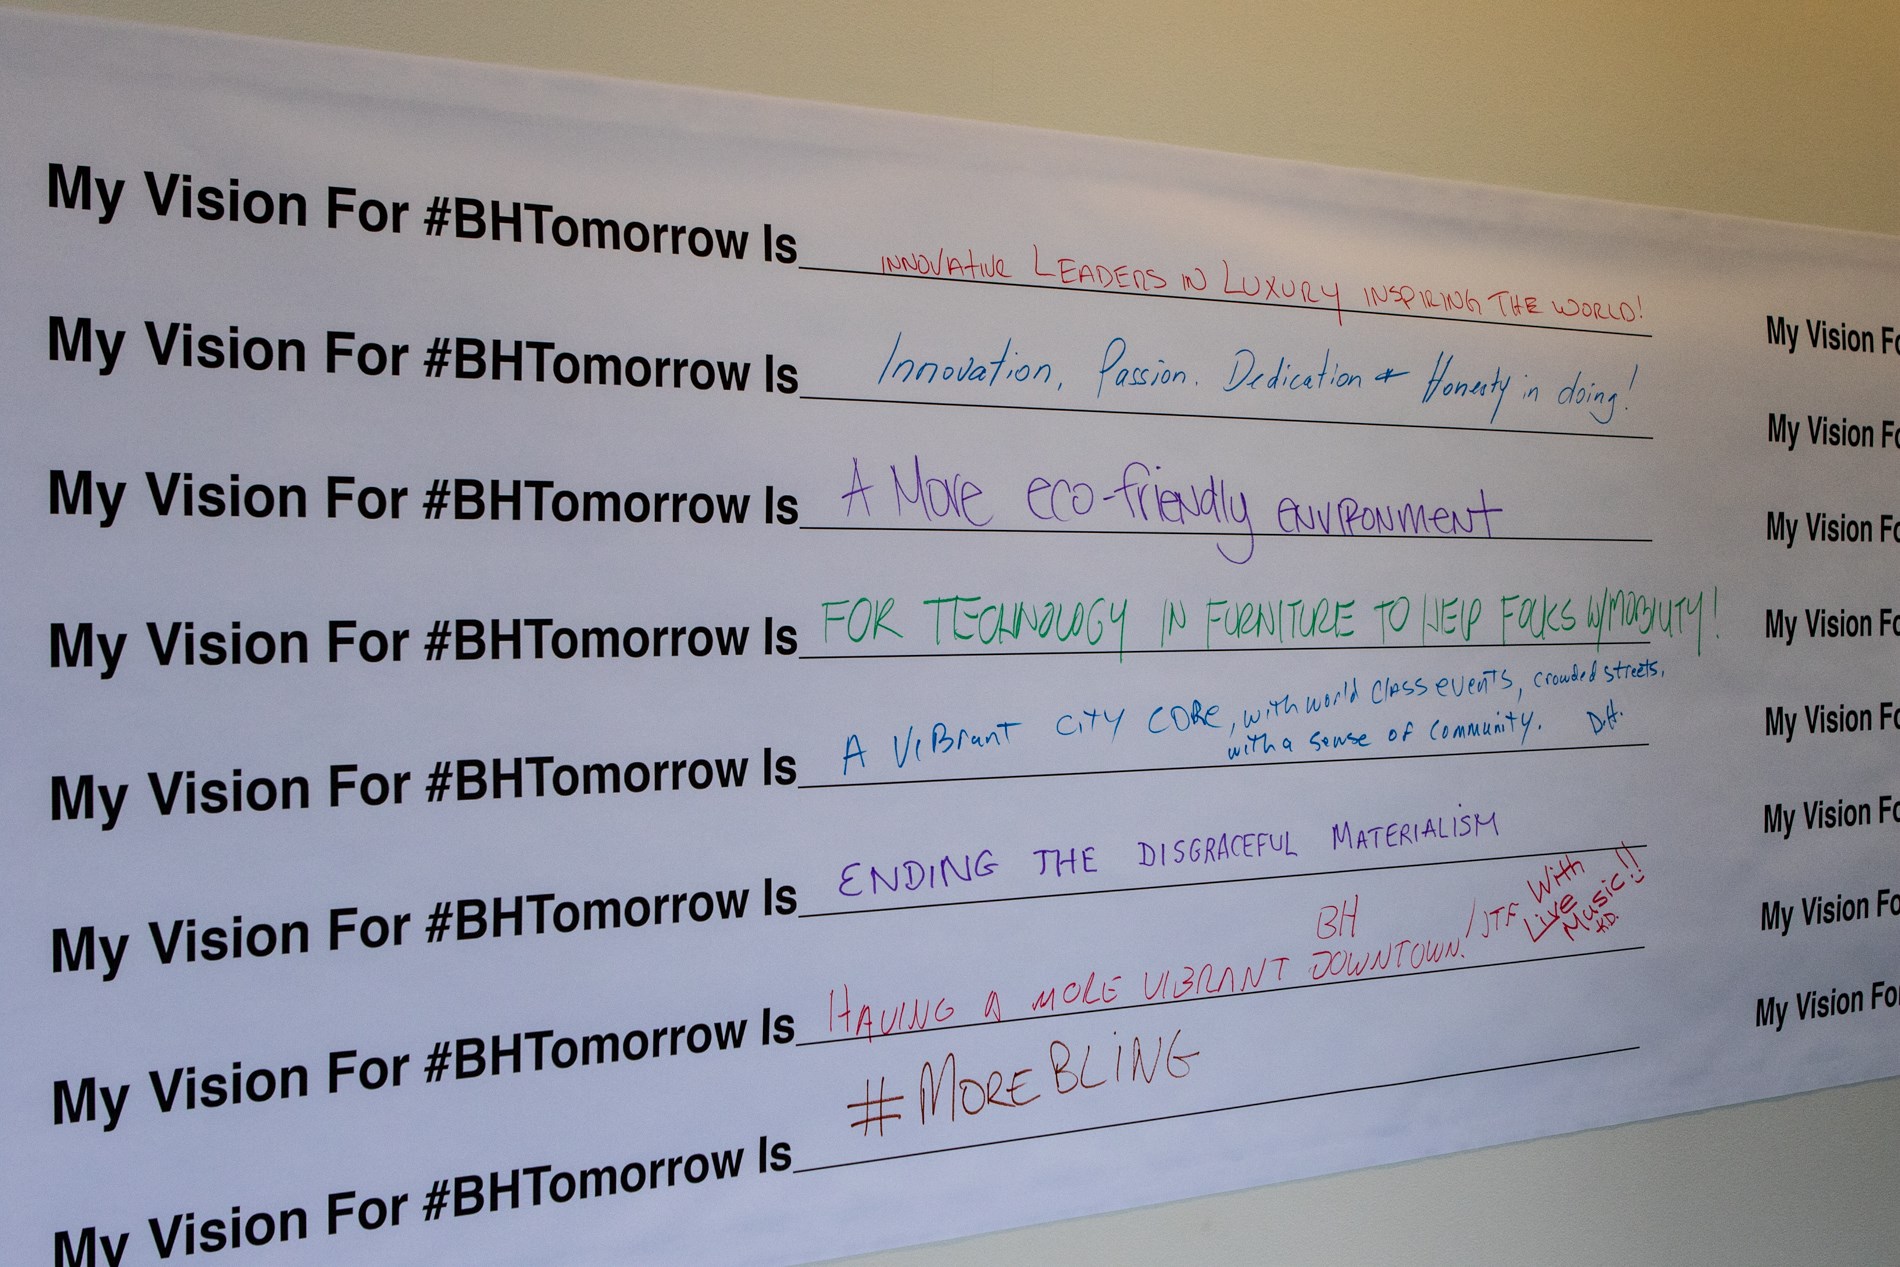 My Vision For #BHTomorrow Is INNOVATIVE LEADERS IN LUXURY INSPIRING THE WORLD!
My Vision For #BHTomorrow Is Innovation, Passion. Dedication + Honesty in doing!
My Vision For #BHTomorrow Is A More eco-friendly ENVIRONMENT
My Vision For #BHTomorrow Is FOR TECHNOLOGY IN FURNITURE TO HELP FOLKS W/MOBILITY!
My Vision For #BHTomorrow Is A ViBrant CiTY CORE, with world Class events, crowded streets,
with a sense of community. D.H.
My Vision For #BHTomorrow Is ENDING THE DISGRACEFUL MATERIALISM
My Vision For #BHTomorrow Is HAVING A MORE VIBRANT BH DOWNTOWN! / JTF With
Live
Music!!
H.D.
My Vision For #BHTomorrow Is #MOREBLiNG
My Vision Fo
My Vision Fo
My Vision Fo
My Vision Fo
My Vision Fo
My Vision Fo
My Vision Fo
My Vision Fo